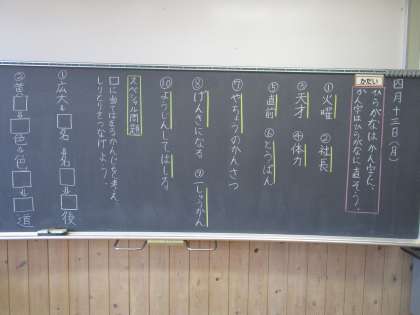 四月十三日（月）
かだい
ひらがなはかん字に、
かん字はひらがなに直そう。
①火曜 ②社長
③天才 ④体力
⑤直前 ⑥とつぜん
⑦やちょうのかんさつ
⑧げんきになる ⑨一しゅうかん
⑩ようじんしてはしる
スペシャル問題
□に当てはまるかん字を考え、
しりとりをつなげよう。
①広大⇨□名⇨名□⇨□後
②黄□⇨□色⇨色□⇨□⇨□道